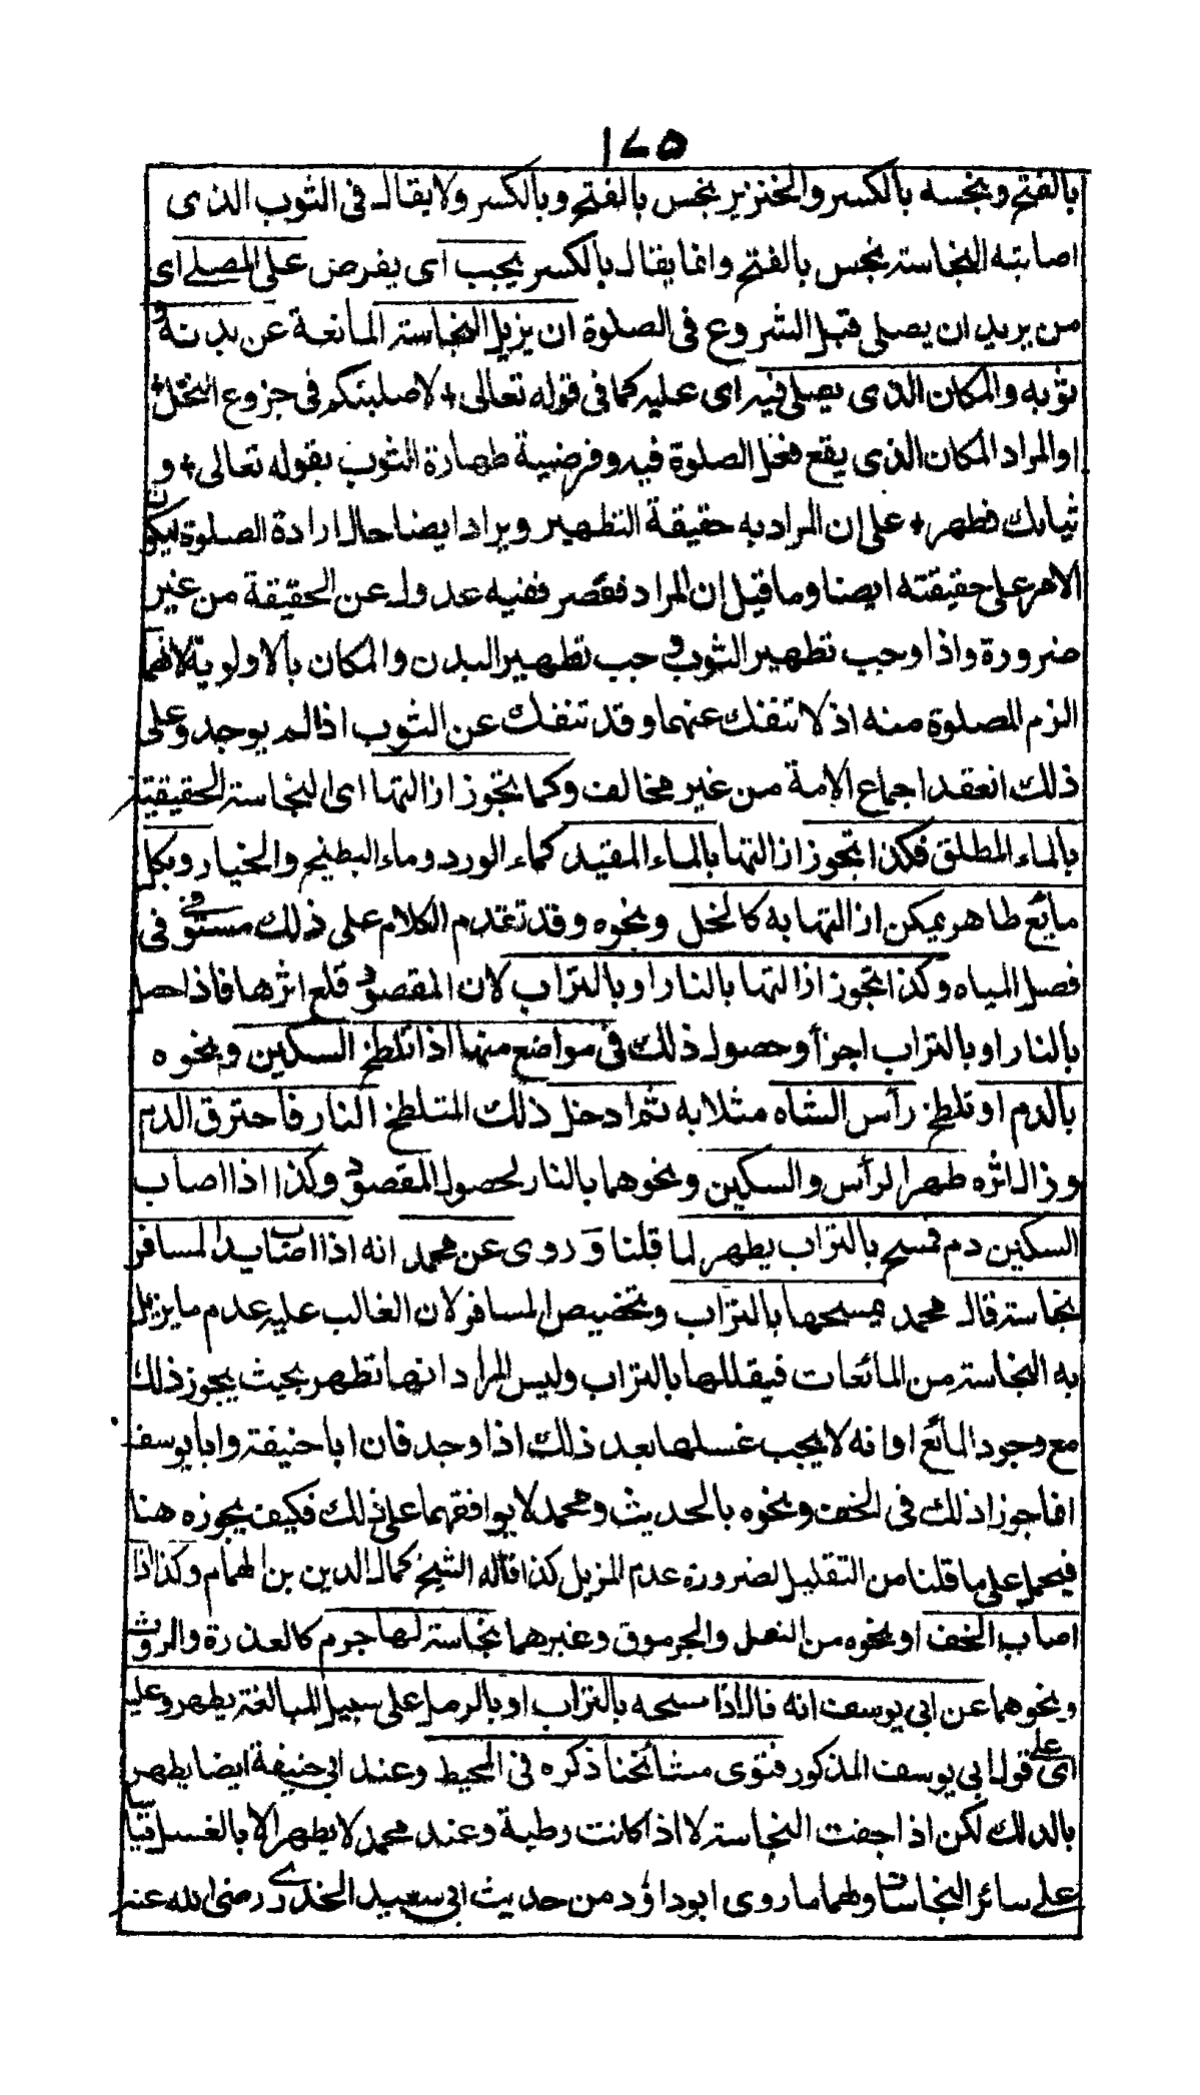 ١٧٥
بالفتح ونجسه بالكسر والخنزير نجس بالفتح وبالكسر ولا يقال فى الثوب الذى
اصابته النجاسة نجس بالفتح وانما يقال بالكسر يجب اى يفرض على المصلے اى
من يريد ان يصلى قبل الشروع فى الصلوة ان يزيل النجاسة المانعة عن بدنه و
ثوبه والمكان الذى يصلى فيه اى عليه كما فى قوله تعالى + لاصلبنكم فى جزوع النخل +
او المراد المكان الذى يقع فعل الصلوة فيه وفرضية طهارة الثوب بقوله تعالى + و
ثيابك فطهر + على ان المراد به حقيقة التطهير ويراد ايضا حال ارادة الصلوة ليكون
الامر على حقيقته ايضا وما قيل ان المراد فقصر ففيه عدول عن الحقيقة من غير
ضرورة واذا وجب تطهير الثوب وجب تطهير البدن والمكان بالاولوية لانهما
الزم للصلوة منه اذ لا تنفك عنهما وقد تنفك عن الثوب اذا لم يوجد وعلى
ذلك انعقد اجماع الامة من غير مخالف وكما تجوز ازالتها اى النجاسة الحقيقية
بالماء المطلق فكذا تجوز ازالتها بالماء المقيد كماء الورد وماء البطيخ والخيار وبكل
مائع طاهر يمكن ازالتها به كالخل ونحوه وقد تقدم الكلام على ذلك مستوفى فى
فصل المياه وكذا تجوز ازالتها بالنار او بالتراب لان المقصود قلع اثرها فاذا حصل
بالنار او بالتراب اجزأ وحصول ذلك فى مواضع منها اذا تلطخ السكين ونحوه
بالدم او تلطخ رأس الشاه مثلا به ثم ادخل ذلك المتلطخ النار فاحترق الدم
وزال اثره طهر الرأس والسكين ونحوهما بالنار لحصول المقصود وكذا اذا اصاب
السكين دم فمسح بالتراب يطهر لما قلنا وروى عن محمد انه اذا اصاب يد المسافر
نجاسة قال محمد يمسحها بالتراب وتخصيص المسافر لان الغالب عليه عدم ما يزيل
به النجاسة من المائعات فيقللها بالتراب وليس المراد انها تطهر بحيث يجوز ذلك
مع وجود المائع او انه لا يجب غسلها بعد ذلك اذا وجد فان ابا حنيفة وابا يوسف
انما جوزا ذلك فى الخف ونحوه بالحديث ومحمد لا يوافقهما على ذلك فكيف يجوزه هنا
فيحمل على ما قلنا من التقليل لضرورة عدم المزيل كذا قاله الشيخ كمال الدين بن الهمام وكذا اذا
اصاب الخف او نحوه من النعل والجرموق وغيرهما نجاسة لها جرم كالعذرة والروث
ونحوهما عن ابى يوسف انه قال اذا مسحه بالتراب او بالرمل على سبيل المبالغة يطهر وعليه
اى على قول ابى يوسف المذكور فتوى مشائخنا ذكره فى المحيط وعند ابى حنيفة ايضا يطهر
بالدلك لكن اذا جفت النجاسة لا اذا كانت رطبة وعند محمد لا يطهر الا بالغسل قياسا
علے سائر النجاسات ولهما ما روى ابو داؤد من حديث ابى سعيد الخدرى رضى الله عنه